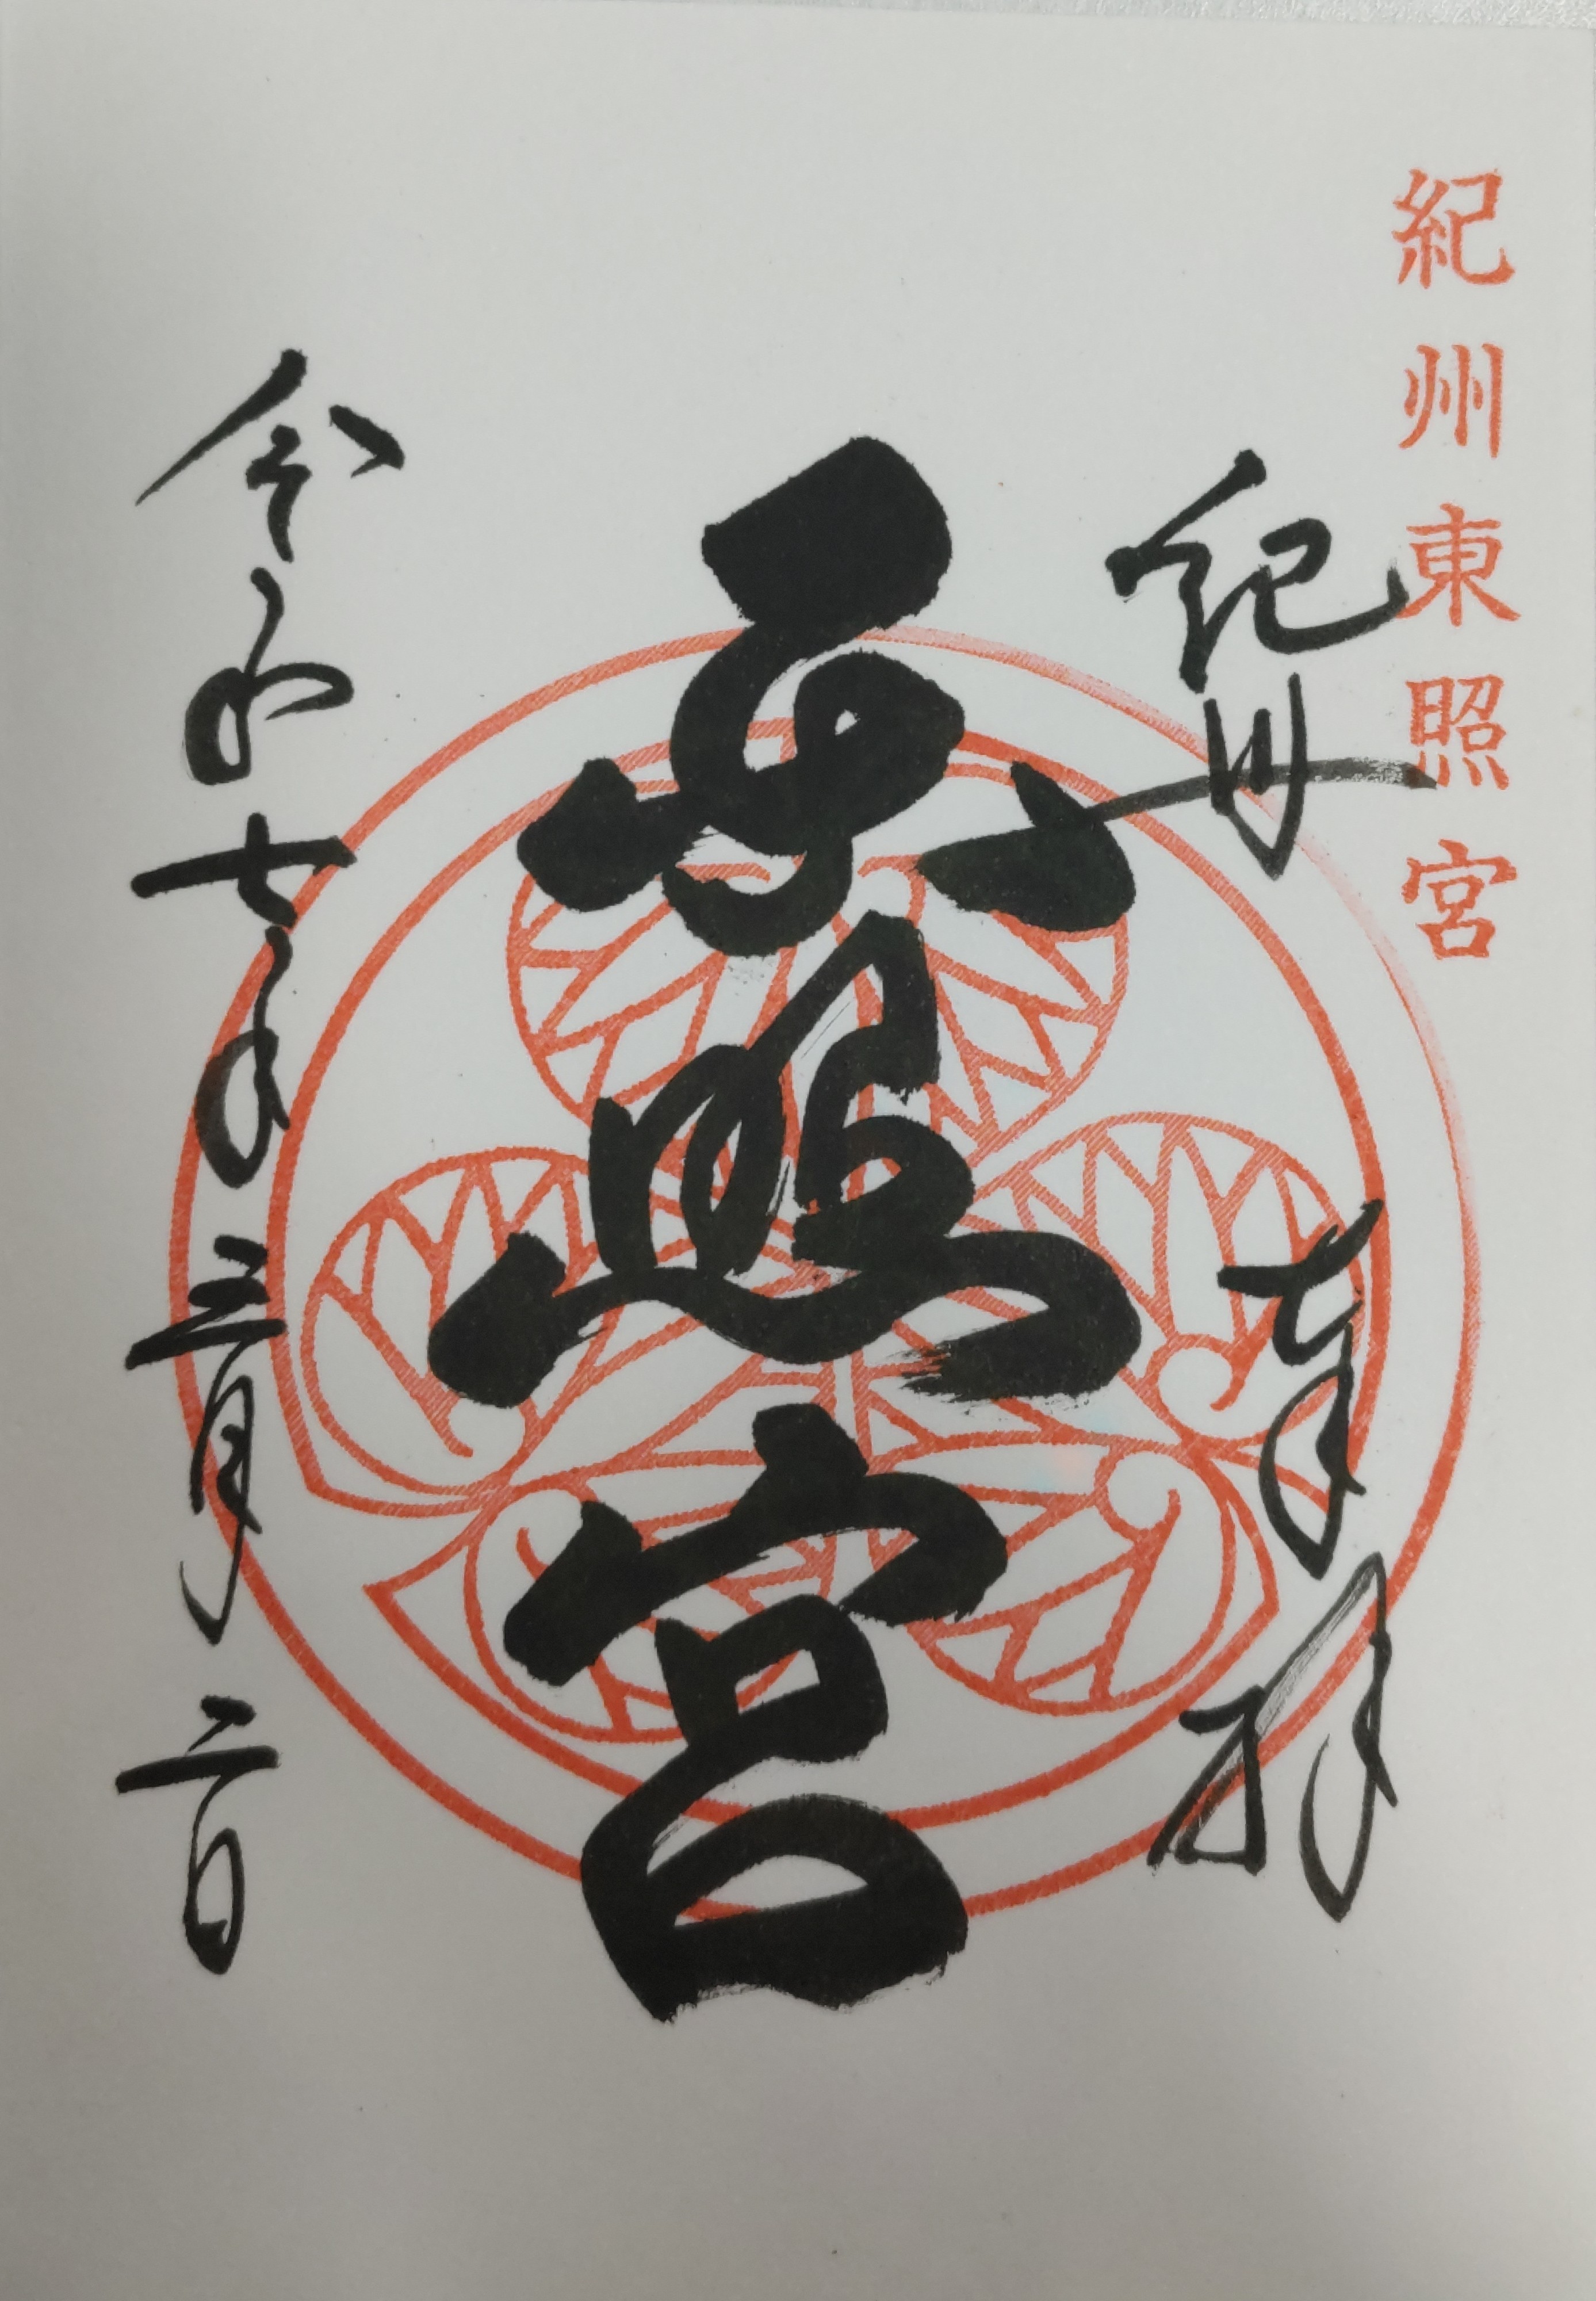 紀州東照宮
紀州
奉拝
東照宮
令和七年三月二日